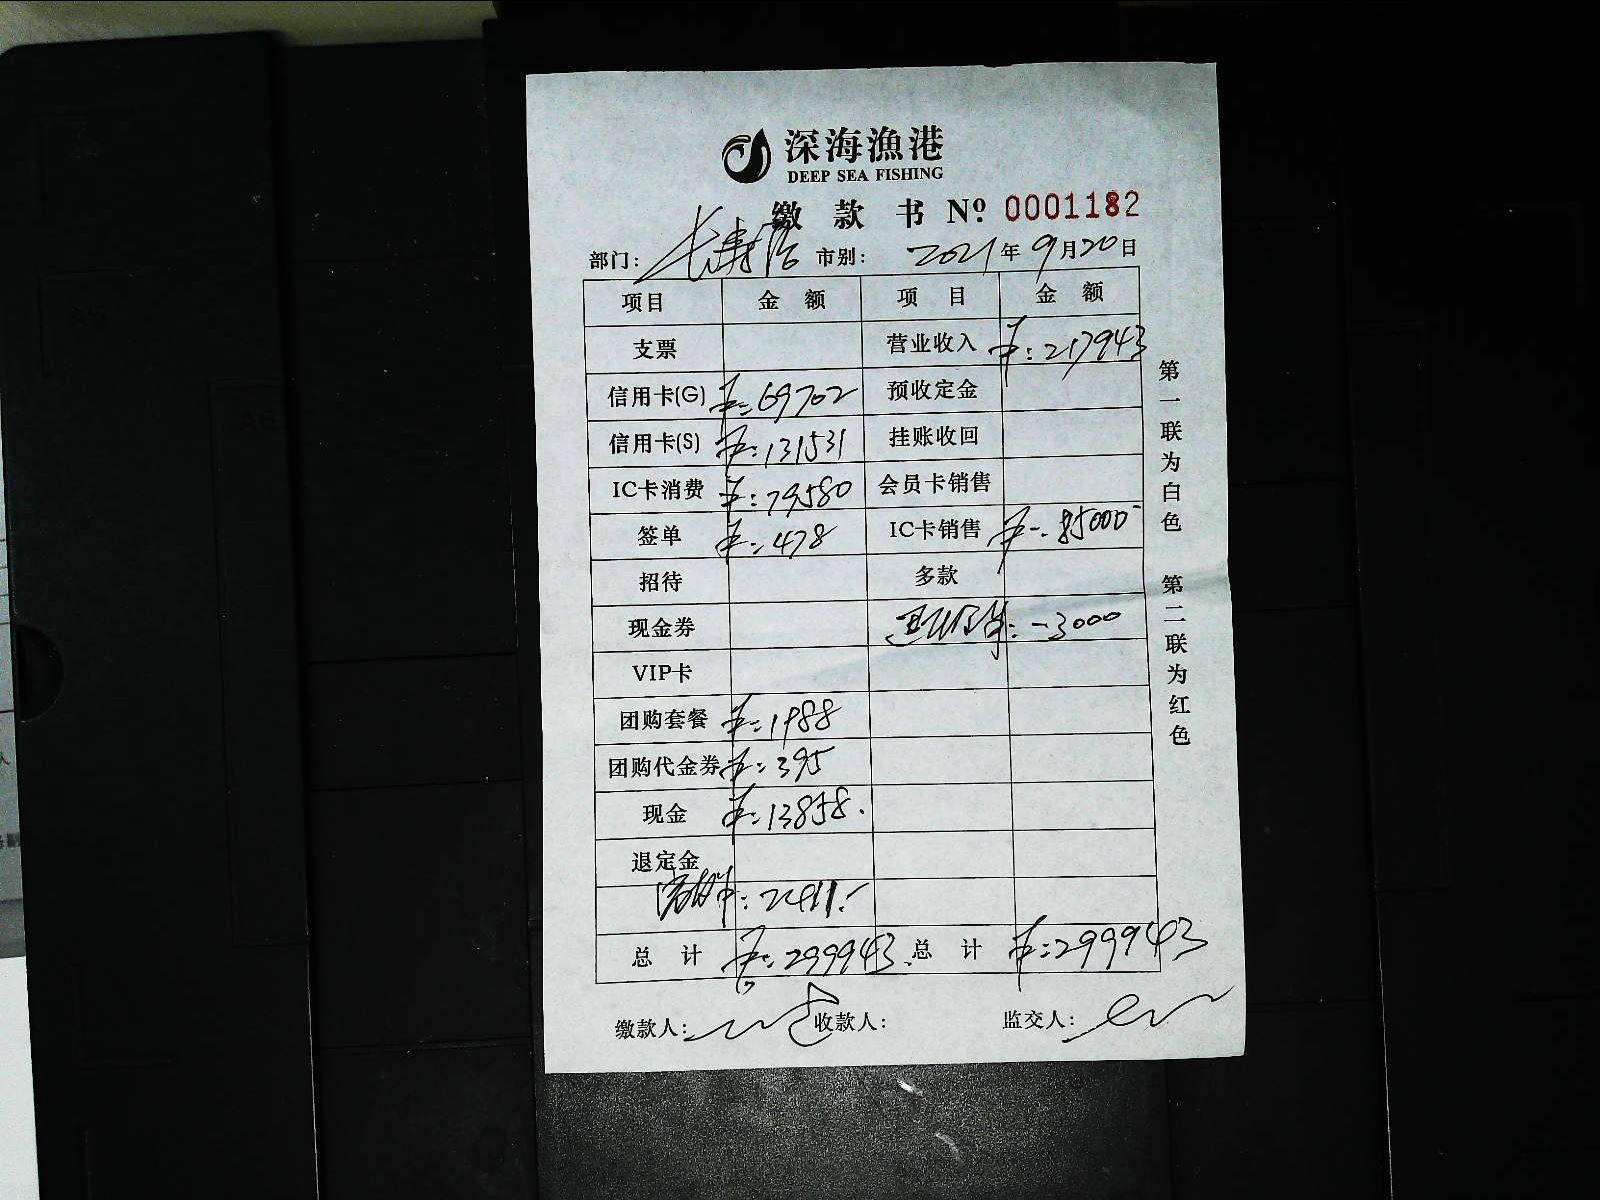 深海漁港
DEEP SEA FISHING
缴款书 Nº 0001182
部门: 长寿路 市别: 2021年9月20日
项目 金额 项目 金额
支票 营业收入 ￥: 217943
信用卡(G) ￥: 69702 预收定金
信用卡(S) ￥: 131531 挂账收回
IC卡消费 ￥: 79580 会员卡销售
签单 ￥: 478 IC卡销售 ￥: 85000-
招待 多款
现金券 : -3000
VIP卡
团购套餐 ￥: 1988
团购代金券 ￥: 395
现金 ￥: 13858.
退定金
: 2411.-
总计 ￥: 299943. 总计 ￥: 299943
缴款人: 收款人: 监交人:
第一联为白色 第二联为红色